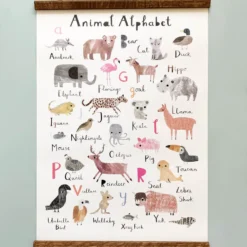 Animal Alphabet
a
Aardvark
Bear
Cat
Duck
Elephant
Flamingo
Goat
Hippo
Iguana
Jaguar
Koala
Llama
Mouse
Nightingale
Octopus
Pig
Toucan
P
Q
Reindeer
Seal
Umbrella
Bird
Wallaby
Xray Fish
Yak
Zebra
Shark